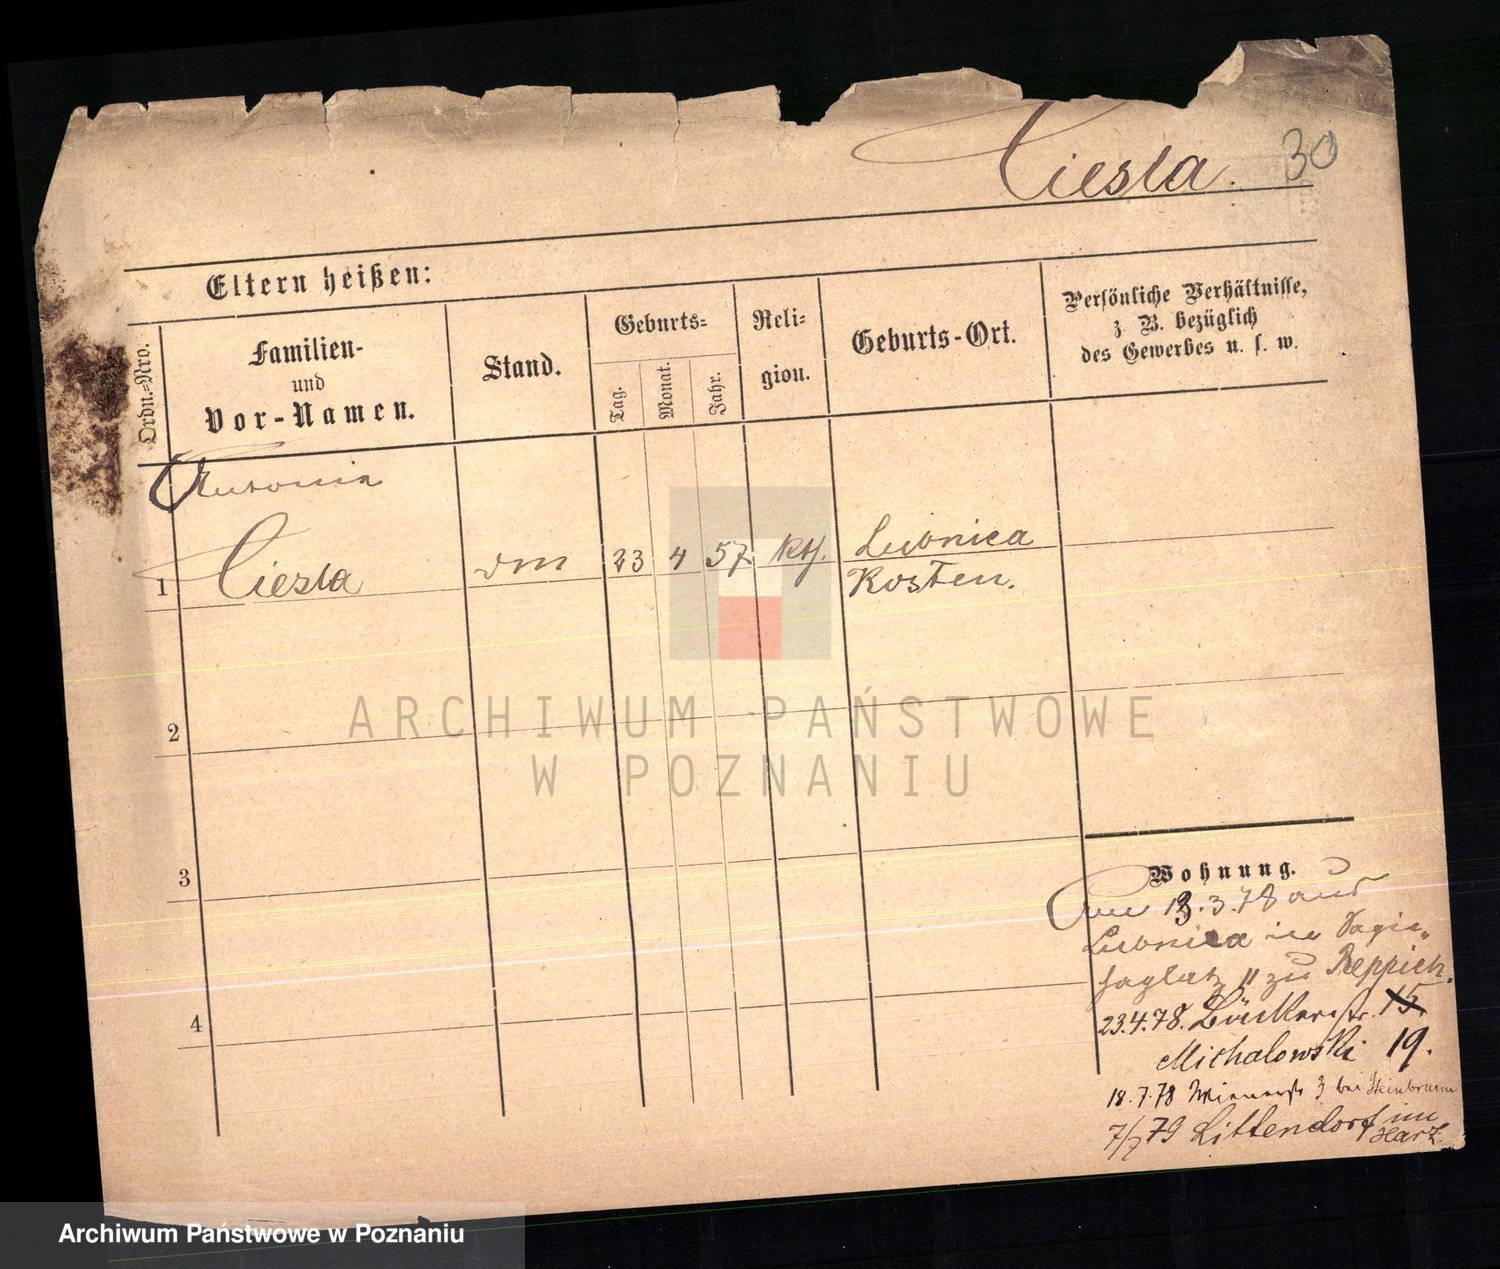 30
Ciesla.
Eltern heißen:
Ordn.-Nro.
Familien-
und
Vor-Namen.
Stand.
Geburts-
Tag.
Monat.
Jahr.
Reli-
gion.
Geburts-Ort.
Persönliche Verhältnisse,
z. B. bezüglich
des Gewerbes u. s. w.
Antonia
1 Ciesla 23 4 57. Kth. Lubnica
Kosten.
2
3
4
ARCHIWUM PAŃSTWOWE
W POZNANIU
Wohnung.
3.78 aus
Lubnica in
zu Reppich.
23.4.78. Bäckerstr. 15
Michalowski 19.
18.7.78 Wienerstr 3 bei Steinbrunn
7/7 79 Littendorf im
Harz.
Archiwum Państwowe w Poznaniu